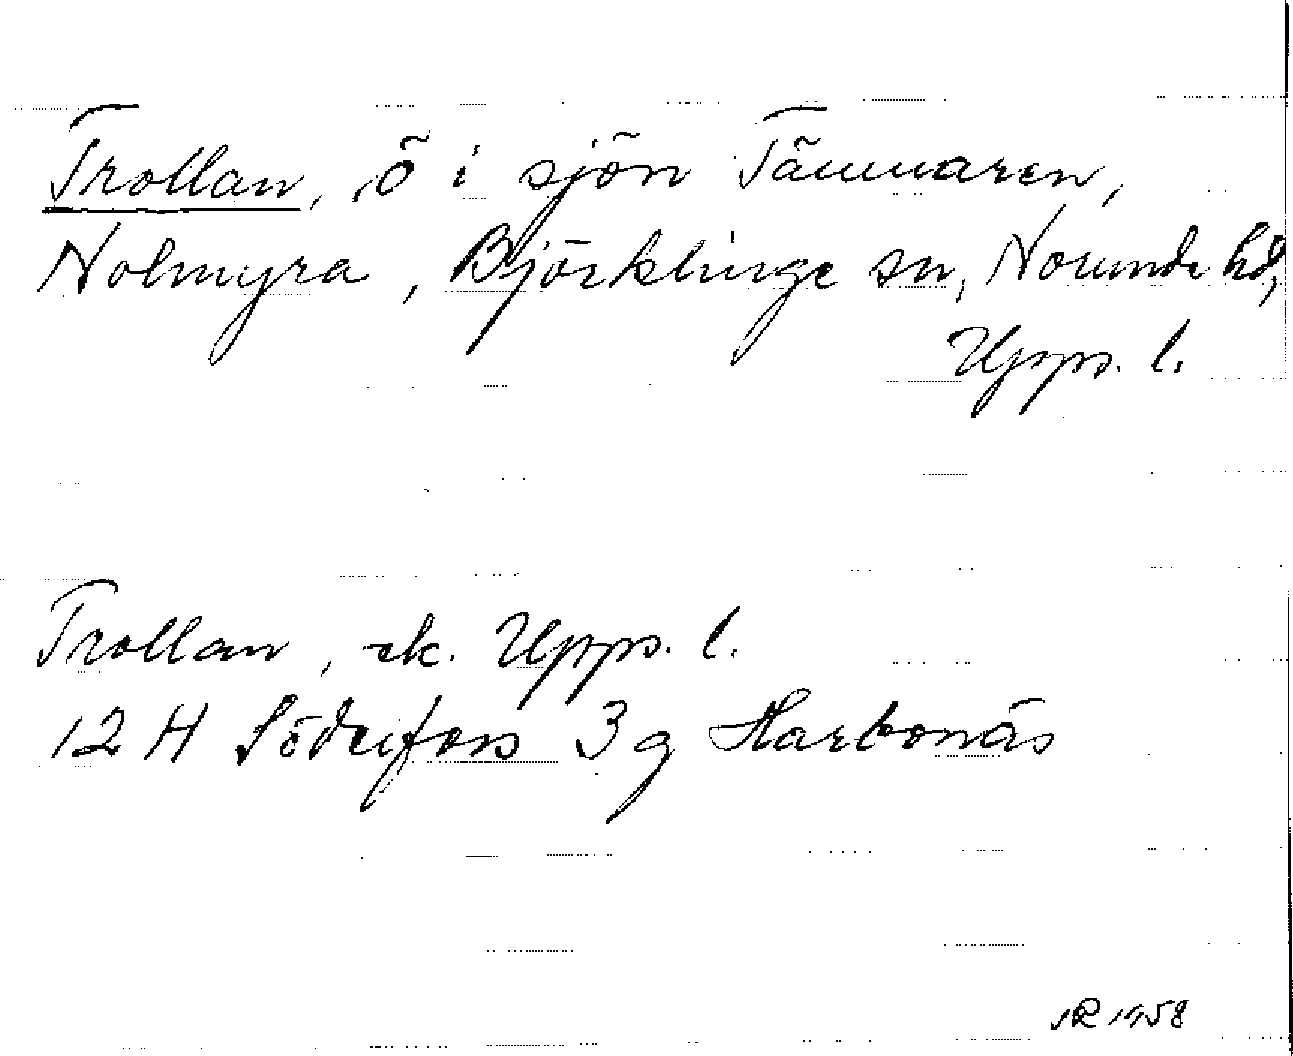 Trollan, ö i sjön Tämnaren,
Nolmyra, Björklinge sn, Norunda hd,
Upps. l.
Trollan, ek. Upps. l.
12 H Söderfors 3 g Harbonäs
1958